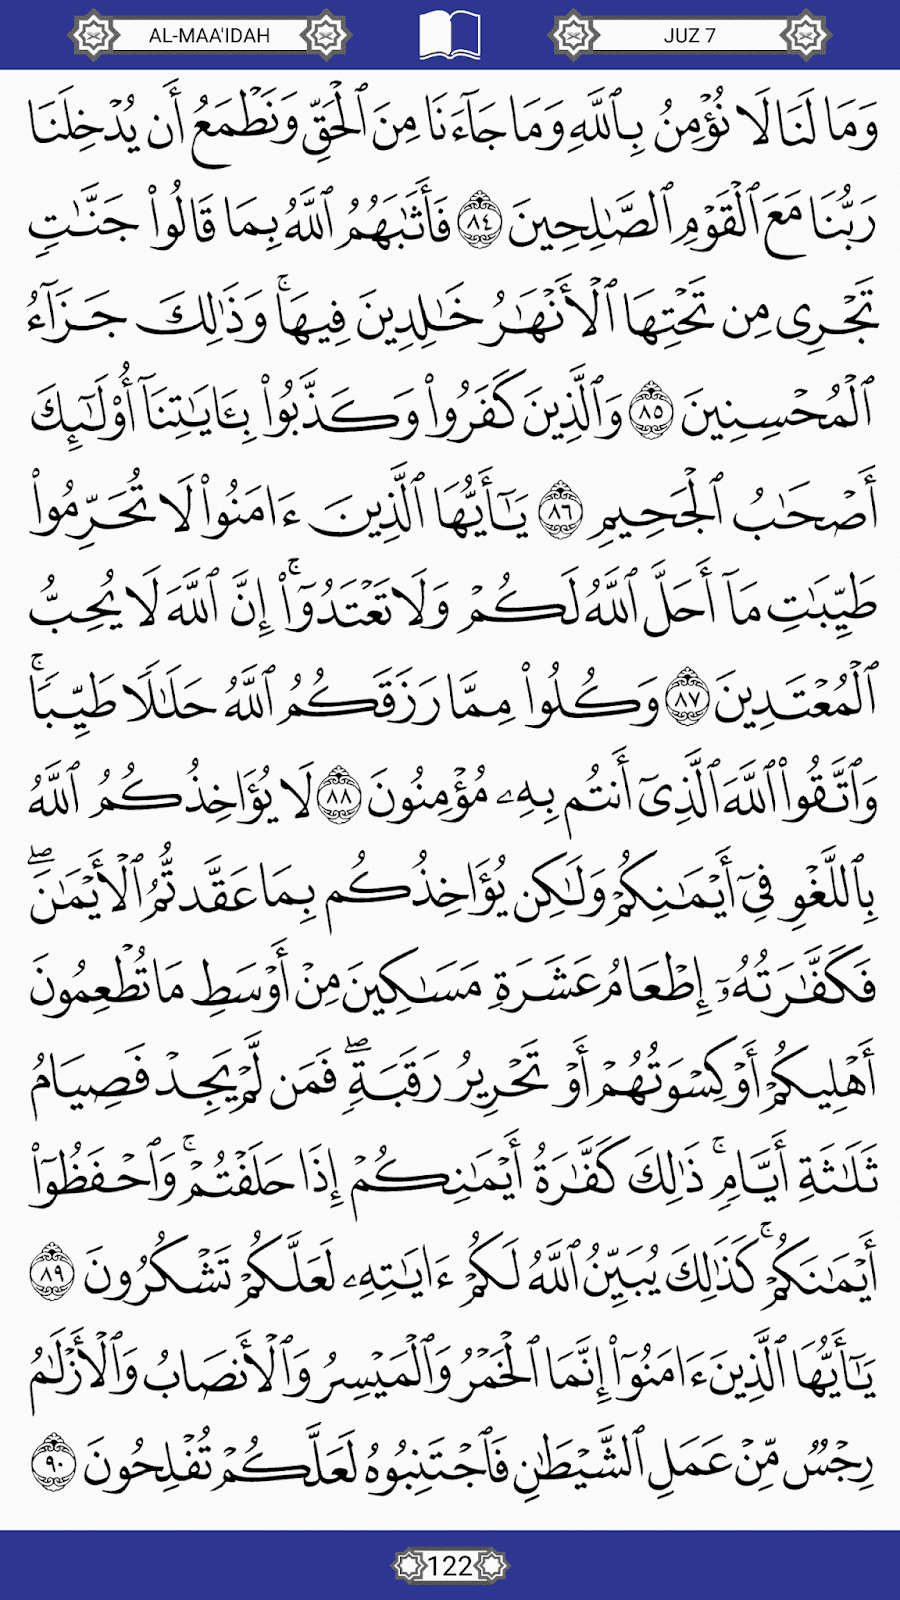 AL-MAA'IDAH
JUZ 7
وَمَا لَنَا لَا نُؤْمِنُ بِٱللَّهِ وَمَا جَآءَنَا مِنَ ٱلْحَقِّ وَنَطْمَعُ أَن يُدْخِلَنَا
رَبُّنَا مَعَ ٱلْقَوْمِ ٱلصَّٰلِحِينَ ٨٤ فَأَثَٰبَهُمُ ٱللَّهُ بِمَا قَالُوا۟ جَنَّٰتٍ
تَجْرِى مِن تَحْتِهَا ٱلْأَنْهَٰرُ خَٰلِدِينَ فِيهَا ۚ وَذَٰلِكَ جَزَآءُ
ٱلْمُحْسِنِينَ ٨٥ وَٱلَّذِينَ كَفَرُوا۟ وَكَذَّبُوا۟ بِـَٔايَٰتِنَآ أُو۟لَٰٓئِكَ
أَصْحَٰبُ ٱلْجَحِيمِ ٨٦ يَٰٓأَيُّهَا ٱلَّذِينَ ءَامَنُوا۟ لَا تُحَرِّمُوا۟
طَيِّبَٰتِ مَآ أَحَلَّ ٱللَّهُ لَكُمْ وَلَا تَعْتَدُوٓا۟ ۚ إِنَّ ٱللَّهَ لَا يُحِبُّ
ٱلْمُعْتَدِينَ ٨٧ وَكُلُوا۟ مِمَّا رَزَقَكُمُ ٱللَّهُ حَلَٰلًا طَيِّبًا ۚ
وَٱتَّقُوا۟ ٱللَّهَ ٱلَّذِىٓ أَنتُم بِهِۦ مُؤْمِنُونَ ٨٨ لَا يُؤَاخِذُكُمُ ٱللَّهُ
بِٱللَّغْوِ فِىٓ أَيْمَٰنِكُمْ وَلَٰكِن يُؤَاخِذُكُم بِمَا عَقَّدتُّمُ ٱلْأَيْمَٰنَ ۖ
فَكَفَّٰرَتُهُۥٓ إِطْعَامُ عَشَرَةِ مَسَٰكِينَ مِنْ أَوْسَطِ مَا تُطْعِمُونَ
أَهْلِيكُمْ أَوْ كِسْوَتُهُمْ أَوْ تَحْرِيرُ رَقَبَةٍ ۖ فَمَن لَّمْ يَجِدْ فَصِيَامُ
ثَلَٰثَةِ أَيَّامٍ ۚ ذَٰلِكَ كَفَّٰرَةُ أَيْمَٰنِكُمْ إِذَا حَلَفْتُمْ ۚ وَٱحْفَظُوٓا۟
أَيْمَٰنَكُمْ ۚ كَذَٰلِكَ يُبَيِّنُ ٱللَّهُ لَكُمْ ءَايَٰتِهِۦ لَعَلَّكُمْ تَشْكُرُونَ ٨٩
يَٰٓأَيُّهَا ٱلَّذِينَ ءَامَنُوٓا۟ إِنَّمَا ٱلْخَمْرُ وَٱلْمَيْسِرُ وَٱلْأَنصَابُ وَٱلْأَزْلَٰمُ
رِجْسٌ مِّنْ عَمَلِ ٱلشَّيْطَٰنِ فَٱجْتَنِبُوهُ لَعَلَّكُمْ تُفْلِحُونَ ٩٠
122